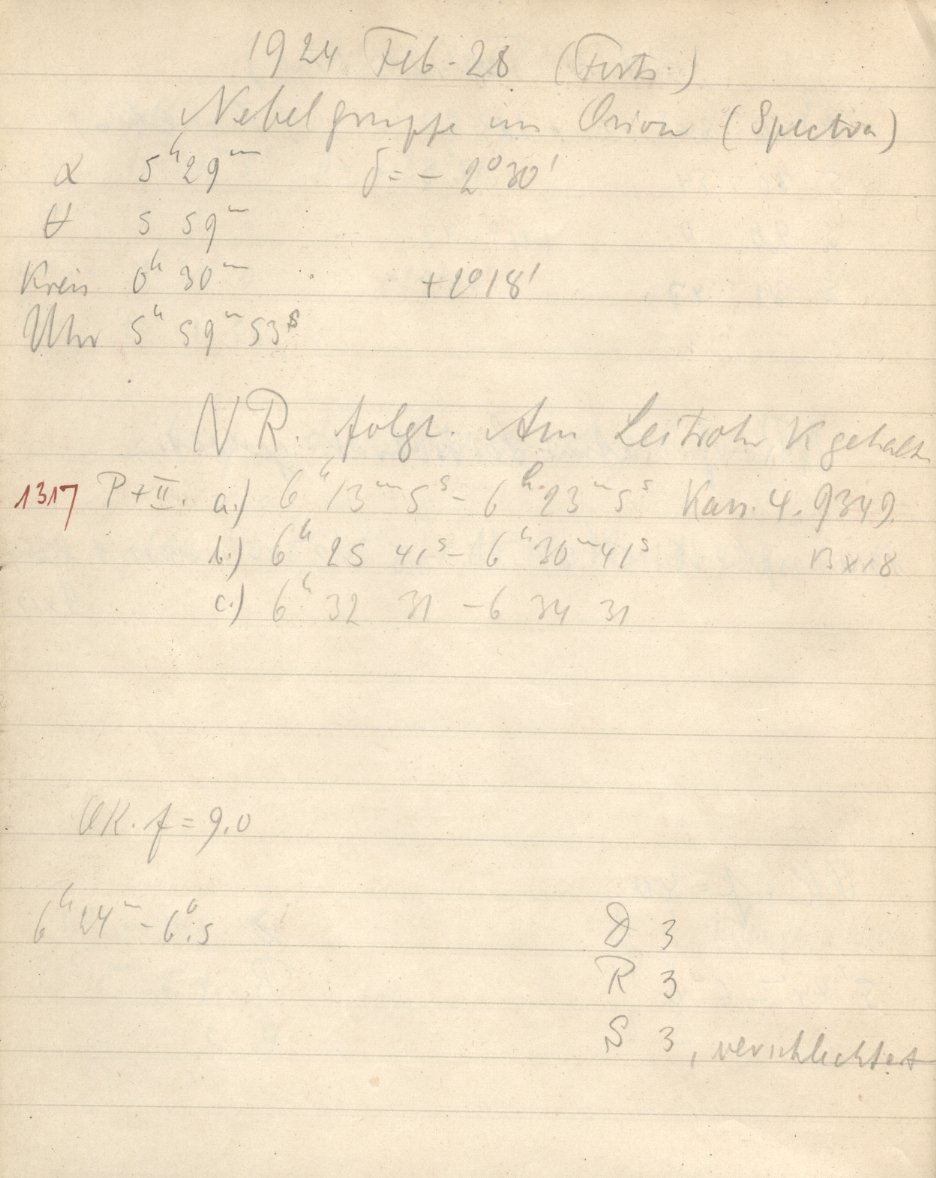 1924 Feb. 28 (Forts.)
Nebelgruppe im Orion (Spectra)
α 5ʰ29ᵐ δ= – 2°30'
5 59ᵐ
Kreis 0ʰ 30ᵐ +2°18'
Uhr 5ʰ 59ᵐ 53ˢ
NR. folgt. Am Leitrohr K gehalten
1317 P+II. a.) 6ʰ13ᵐ5ˢ – 6ʰ23ᵐ5ˢ Kass. 4. 9349.
b.) 6ʰ 25 41ˢ – 6ʰ30ᵐ41ˢ 13x18
c.) 6ʰ 32 31 – 6 34 31
OK. f = 9.0
6ʰ24ᵐ – 6°.5
D 3
R 3
S 3, verschlechtert